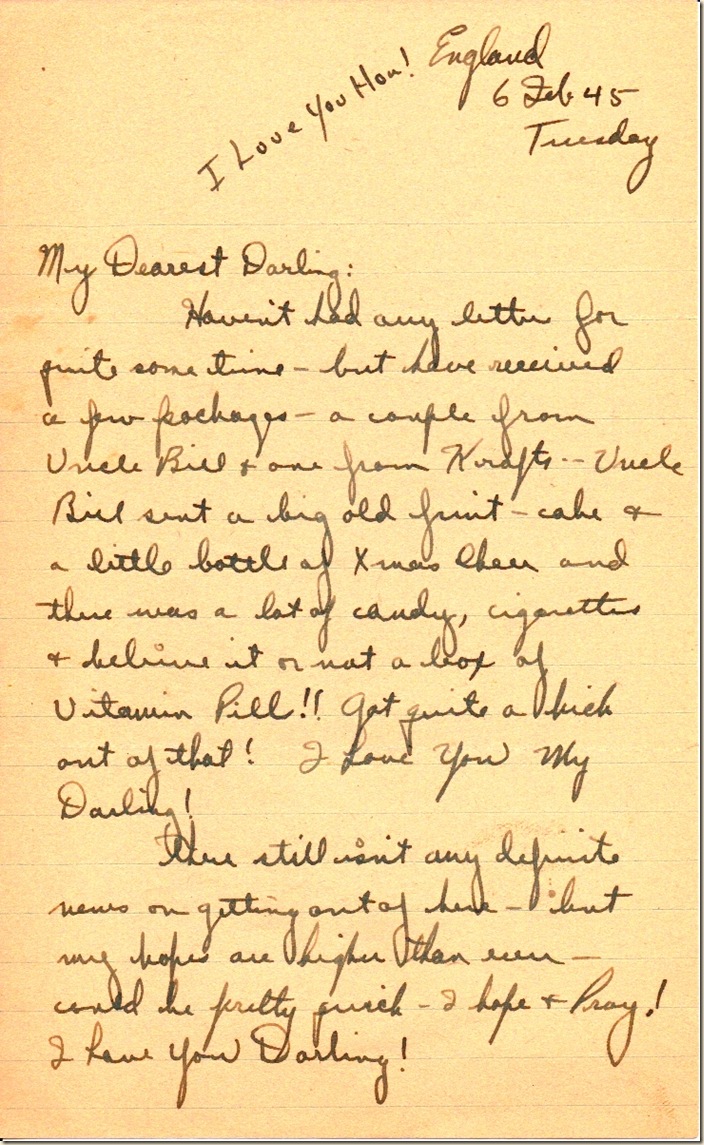 England
I Love You Hon!
6 Feb 45
Tuesday
My Dearest Darling:
Haven't had any letter for
quite some time - but have received
a few packages - a couple from
Uncle Bill & one from Krafts -- Uncle
Bill sent a big old fruit - cake &
a little bottle of Xmas Cheer and
there was a lot of candy, cigarettes
& believe it or not a box of
Vitamin Pill!! Got quite a kick
out of that! I Love You My
Darling!
There still isn't any definite
news on getting out of here - but
my hopes are higher than ever -
could be pretty quick - I hope & Pray!
I Love You Darling!